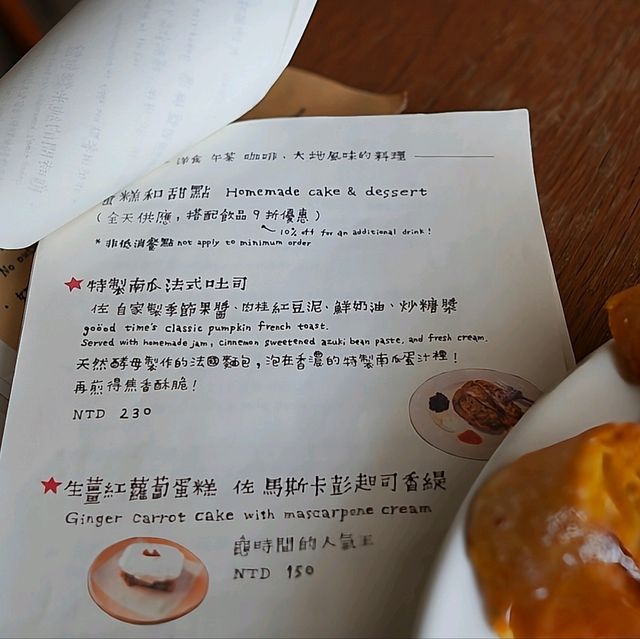 洋食 午茶 咖啡、大地風味的料理
蛋糕和甜點 Homemade cake & dessert
(全天供應,搭配飲品9折優惠)
10% off for an additional drink!
*非低消餐點 not apply to minimum order
特製南瓜法式吐司
佐 自家製季節果醬、肉桂紅豆泥、鮮奶油、炒糖漿
goööd time's classic pumpkin french toast.
Served with homemade jam, cinnemon sweetened azuki bean paste, and fresh cream.
天然酵母製作的法國麵包,泡在香濃的特製南瓜蛋汁裡!
再煎得焦香酥脆!
NTD 230
生薑紅蘿蔔蛋糕 佐 馬斯卡彭起司香緹
Ginger carrot cake with mascarpone cream
龜時間的人氣王
NTD 150